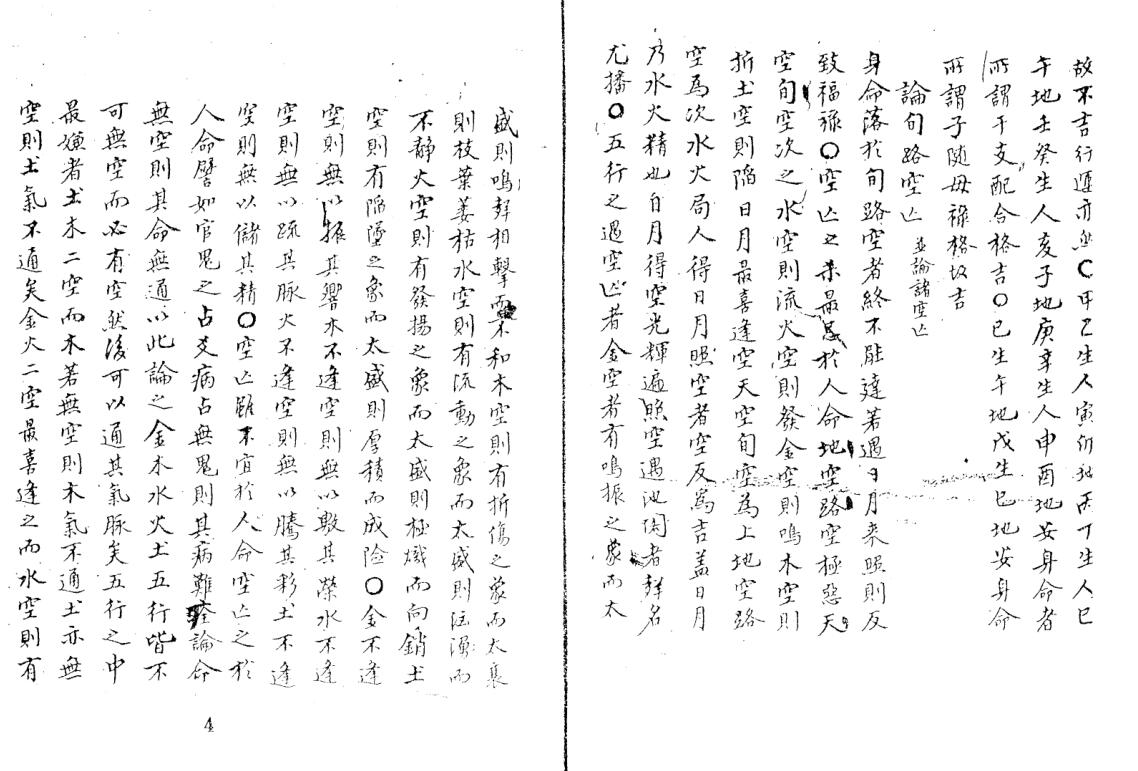 故不吉行運亦然〇甲乙生人寅卯地丙丁生人巳
午地壬癸生人亥子地庚辛生人申酉地安身命者
所謂干支配合格吉〇己生午地戊生巳地安身命
所謂子隨母祿格故吉
論旬路空亡 並論諸空亡
身命落於旬路空者終不能達若遇日月來照則反
致福祿〇空亡之未最忌於人命地空路空極惡天
空旬空次之水空則流火空則發金空則鳴木空則
折土空則陷日月最喜逢空天空旬空為上地空路
空為次水火局人得日月照空者空反為吉蓋日月
乃水火精也日月得空光輝遍照空遇池閣者聲名
尤播〇五行之遇空亡者金空者有鳴振之象而太
盛則鳴聲相擊而不和木空則有折傷之象而太衰
則枝葉萎枯水空則有流動之象而太盛則汪溺而
不靜火空則有發揚之象而太盛則極熾而向銷土
空則有陷墮之象而太盛則厚積而成險〇金不逢
空則無以振其響木不逢空則無以敷其榮水不逢
空則無以疏其脉火不逢空則無以騰其彩土不逢
空則無以儲其精〇空亡雖不宜於人命空亡之於
人命譬如官鬼之占爻病占無鬼則其病難痊論命
無空則其命無通以此論之金木水火土五行皆不
可無空而必有空然後可以通其氣脉矣五行之中
最嫌者土木二空而木若無空則木氣不通土亦無
空則土氣不通矣金火二空最喜逢之而水空則有
4